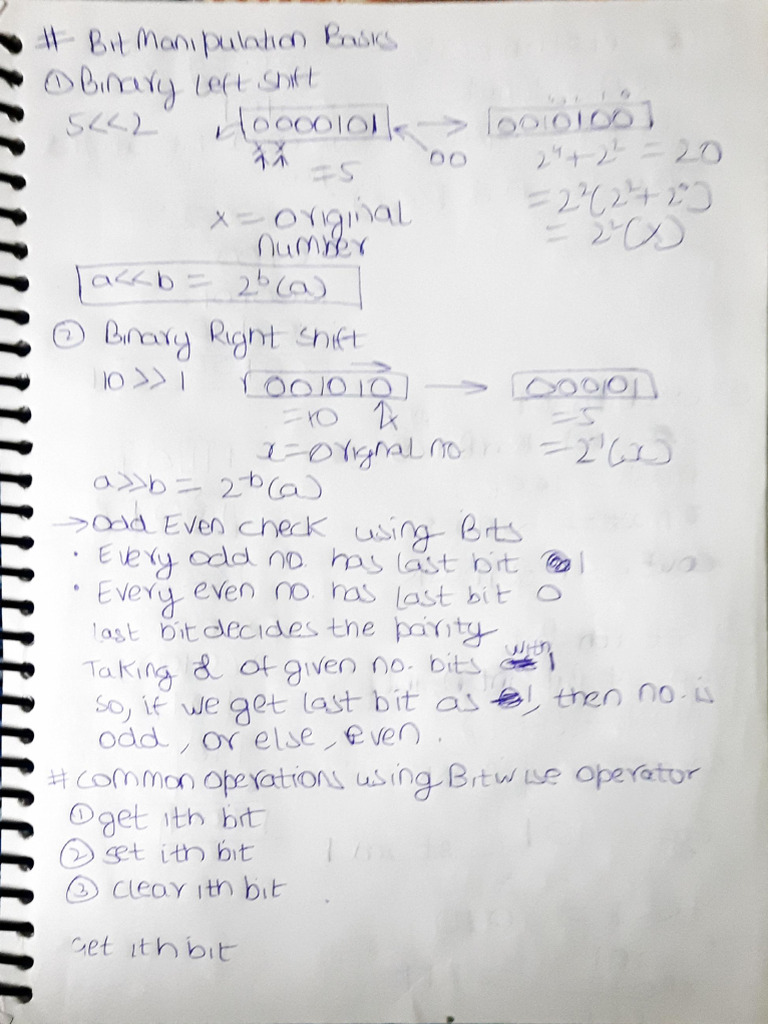 # Bit Manipulation Basics
① Binary Left Shift
5<<2 0000101 → 0010100
00
=5 2⁴+2² = 20
= 2²(2²+2⁰)
x = original = 2²(x)
number
a<<b = 2ᵇ(a)
② Binary Right Shift
10>>1 001010 → 000101
=10 =5
x=original no =2⁻¹(x)
a>>b = 2⁻ᵇ(a)
→ Odd Even check using Bits
· Every odd no. has last bit 1
· Every even no. has last bit 0
last bit decides the parity
Taking & of given no. bits with 1
so, if we get last bit as 1, then no. is
odd, or else, even.
# Common operations using Bitwise operator
① get ith bit
② set ith bit
③ clear ith bit
Get ith bit